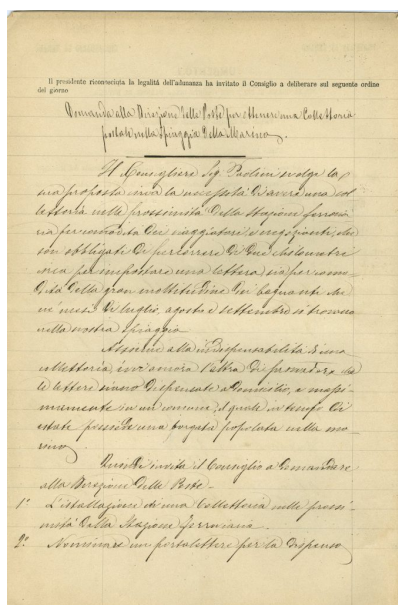 Il presidente riconosciuta la legalità dell'adunanza ha invitato il Consiglio a deliberare sul seguente ordine
del giorno
Domanda alla Direzione delle Poste per ottenere una Collettoria
postale nella Spiaggia della Marina.
Il Consigliere Sig. Paolini svolge la
sua proposta circa la necessità di avere una col
lettoria nelle prossimità della Stazione ferrovia
ria per comodità dei viaggiatori e negozianti, che
son obbligati di percorrere di due chilometri
circa per impostare una lettera sia per como
dità della gran moltitudine di bagnanti che
ne' mesi di luglio, agosto e settembre si trovano
nella nostra spiaggia.
Assieme alla indispensabilità di una
collettoria, evvi ancora l'altra di provvedere che
le lettere siano dispensate a domicilio, e massi
mamente in un comune, il quale in tempo di
estate possiede una borgata popolata nella ma
rina.
Quindi invita il Consiglio a domandare
alla Direzione delle Poste -
1° L'istallazione di una Collettoria nelle prossi
mità della Stazione ferroviaria.
2° Nominare un portalettere per la dispensa